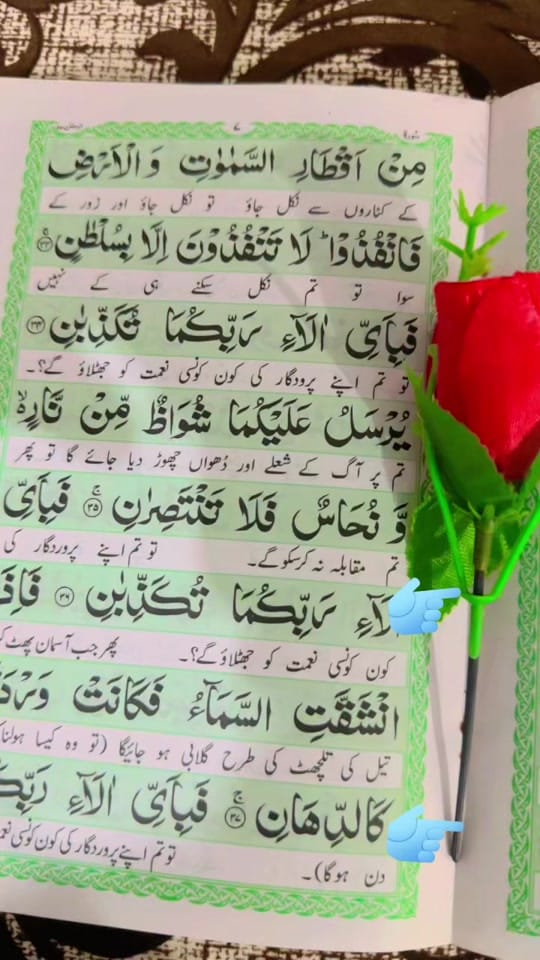 سورة
٧
الرحمٰن ۵۵
مِنْ اَقْطَارِ السَّمٰوٰتِ وَ الْاَرْضِ
کے کناروں سے نکل جاؤ تو نکل جاؤ اور زور کے
فَانْفُذُوْا ؕ لَا تَنْفُذُوْنَ اِلَّا بِسُلْطٰنٍ ۚ ﴿۳۳﴾
سوا تو تم نکل سکنے ہی کے نہیں
فَبِاَیِّ اٰلَآءِ رَبِّكُمَا تُكَذِّبٰنِ ﴿۳۴﴾
تو تم اپنے پروردگار کی کون کونسی نعمت کو جھٹلاؤ گے؟۔
یُرْسَلُ عَلَیْكُمَا شُوَاظٌ مِّنْ نَّارٍ ۙ۬
تم پر آگ کے شعلے اور دُھواں چھوڑ دیا جائے گا تو پھر
وَّ نُحَاسٌ فَلَا تَنْتَصِرٰنِ ۚ ﴿۳۵﴾ فَبِاَیِّ
تم مقابلہ نہ کرسکو گے۔ تو تم اپنے پروردگار کی
لَآءِ رَبِّكُمَا تُكَذِّبٰنِ ﴿۳۶﴾ فَاِذَ
کون کونسی نعمت کو جھٹلاؤ گے؟۔ پھر جب آسمان پھٹ کر
انْشَقَّتِ السَّمَآءُ فَكَانَتْ وَرْدَ
تیل کی تلچھٹ کی طرح گلابی ہو جائیگا (تو وہ کیسا ہولنا
كَالدِّهَانِ ۚ ﴿۳۷﴾ فَبِاَیِّ اٰلَآءِ رَبِّكُ
دن ہوگا)۔ تو تم اپنے پروردگار کی کون کونسی نعم